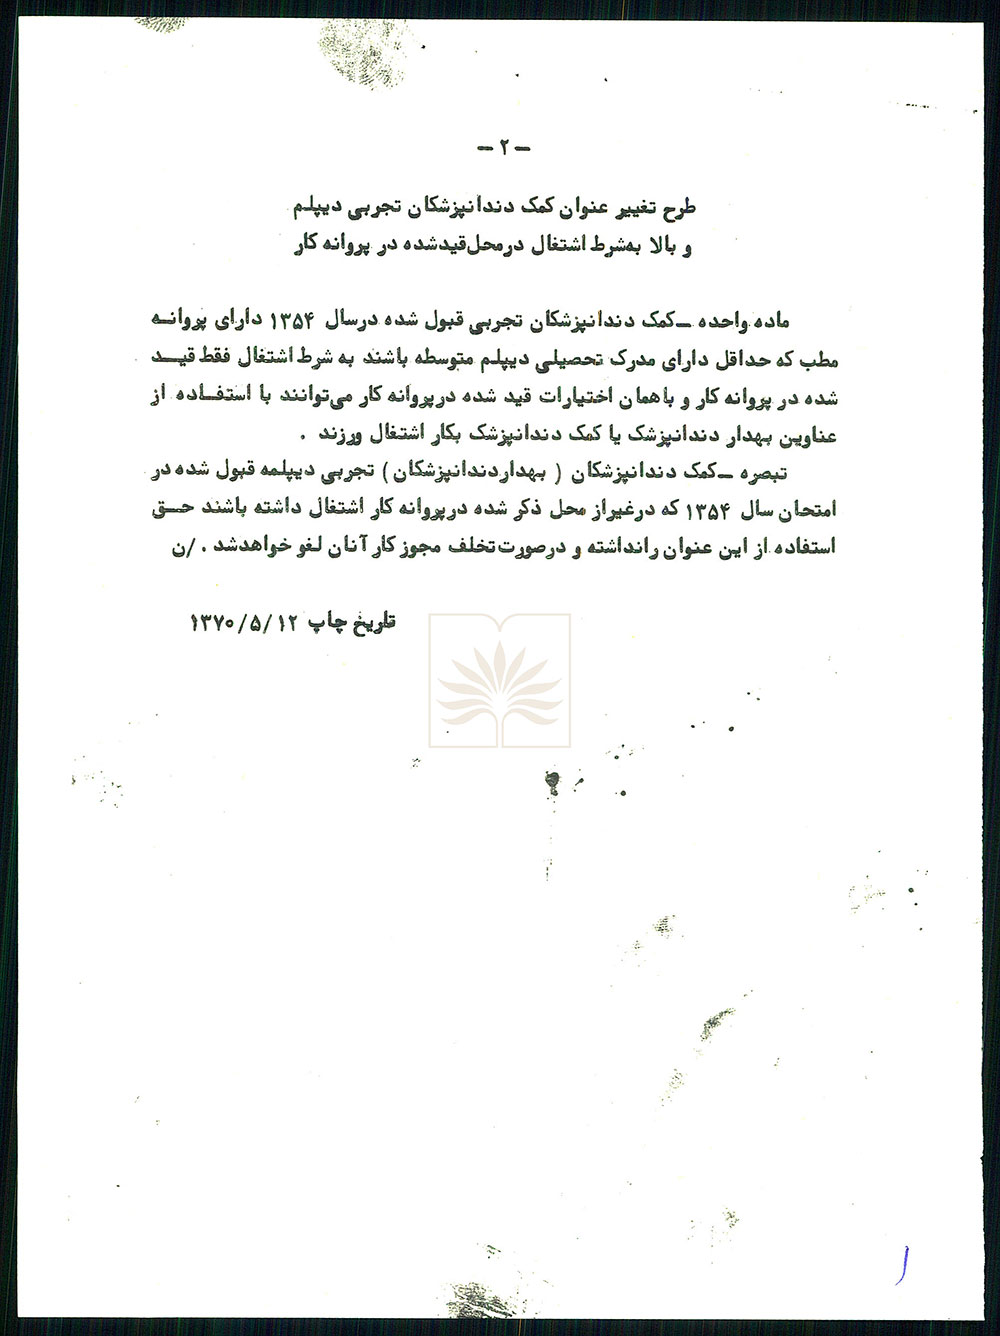 – ۲ –
طرح تغییر عنوان کمک دندانپزشکان تجربی دیپلم
و بالا به‌شرط اشتغال درمحل‌قیدشده در پروانه کار
ماده واحده – کمک دندانپزشکان تجربی قبول شده درسال ۱۳۵۴ دارای پروانه
مطب که حداقل دارای مدرک تحصیلی دیپلم متوسطه باشند به شرط اشتغال فقط قید
شده در پروانه کار و باهمان اختیارات قید شده درپروانه کار می‌توانند با استفاده از
عناوین بهدار دندانپزشک یا کمک دندانپزشک بکار اشتغال ورزند .
تبصره – کمک دندانپزشکان ( بهداردندانپزشکان ) تجربی دیپلمه قبول شده در
امتحان سال ۱۳۵۴ که درغیراز محل ذکر شده درپروانه کار اشتغال داشته باشند حق
استفاده از این عنوان رانداشته و درصورت‌تخلف مجوز کار آنان لغو خواهدشد . /ن
تاریخ چاپ ۱۳۷۰/۵/۱۲
۱